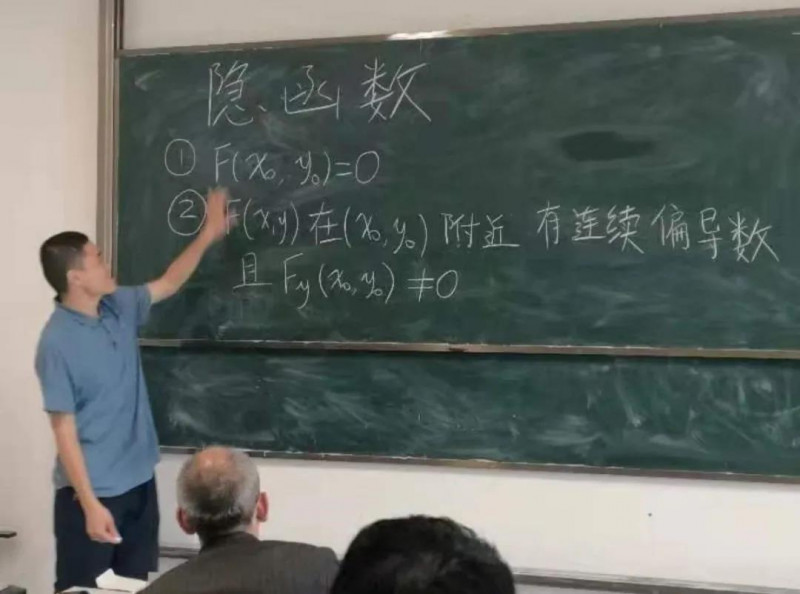 隐函数
① F(x₀, y₀)=0
② F(x,y) 在(x₀, y₀) 附近 有连续偏导数
且 Fy(x₀,y₀) ≠0